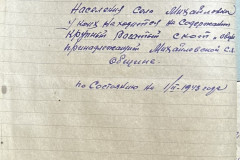 Населения Село Михайловки
у коих находится на содержании
Крупный Рогатый скот,
принадлежащий Михайловской с.х.
Общине
по Состоянию на 1/II-1943 года